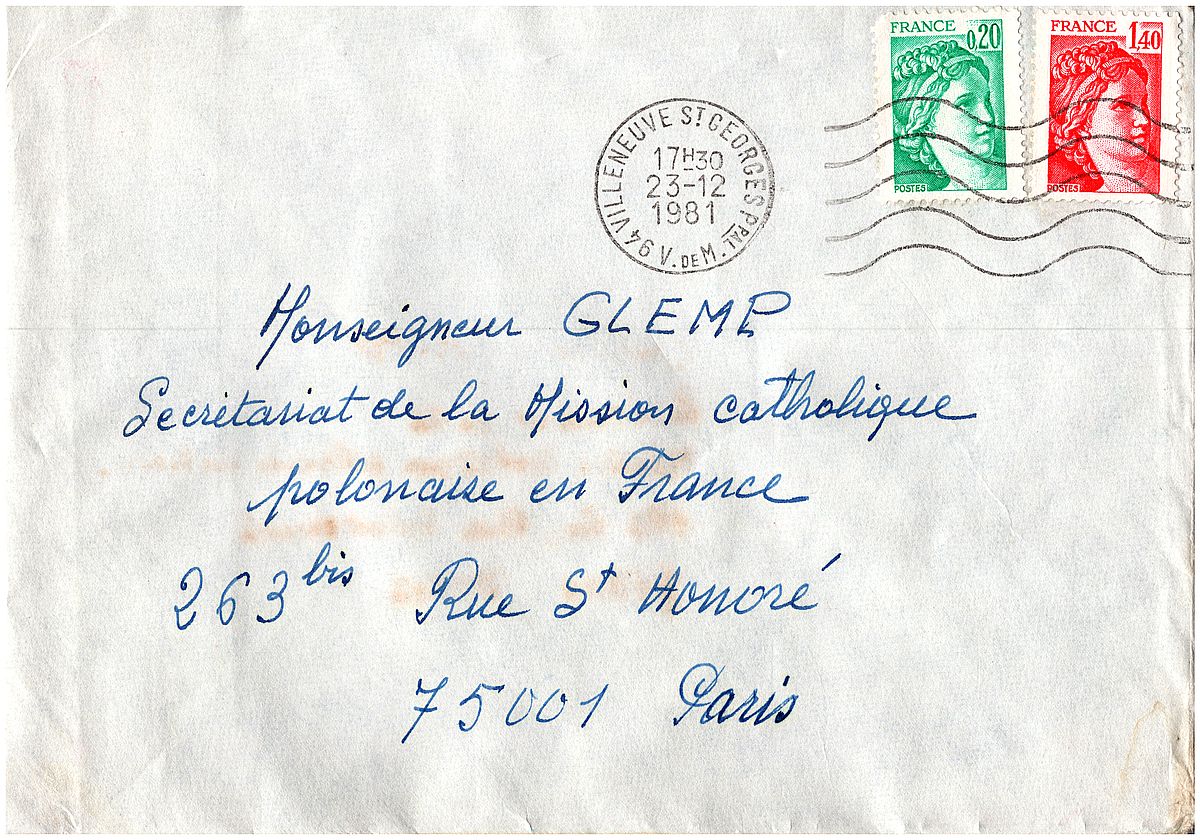 FRANCE 0,20
POSTES
FRANCE 1,40
POSTES
94 VILLENEUVE ST GEORGES PPAL V. DE M.
17H30
23-12
1981
Monseigneur GLEMP
Secrétariat de la Mission catholique
polonaise en France
263 bis Rue St Honoré
75001 Paris